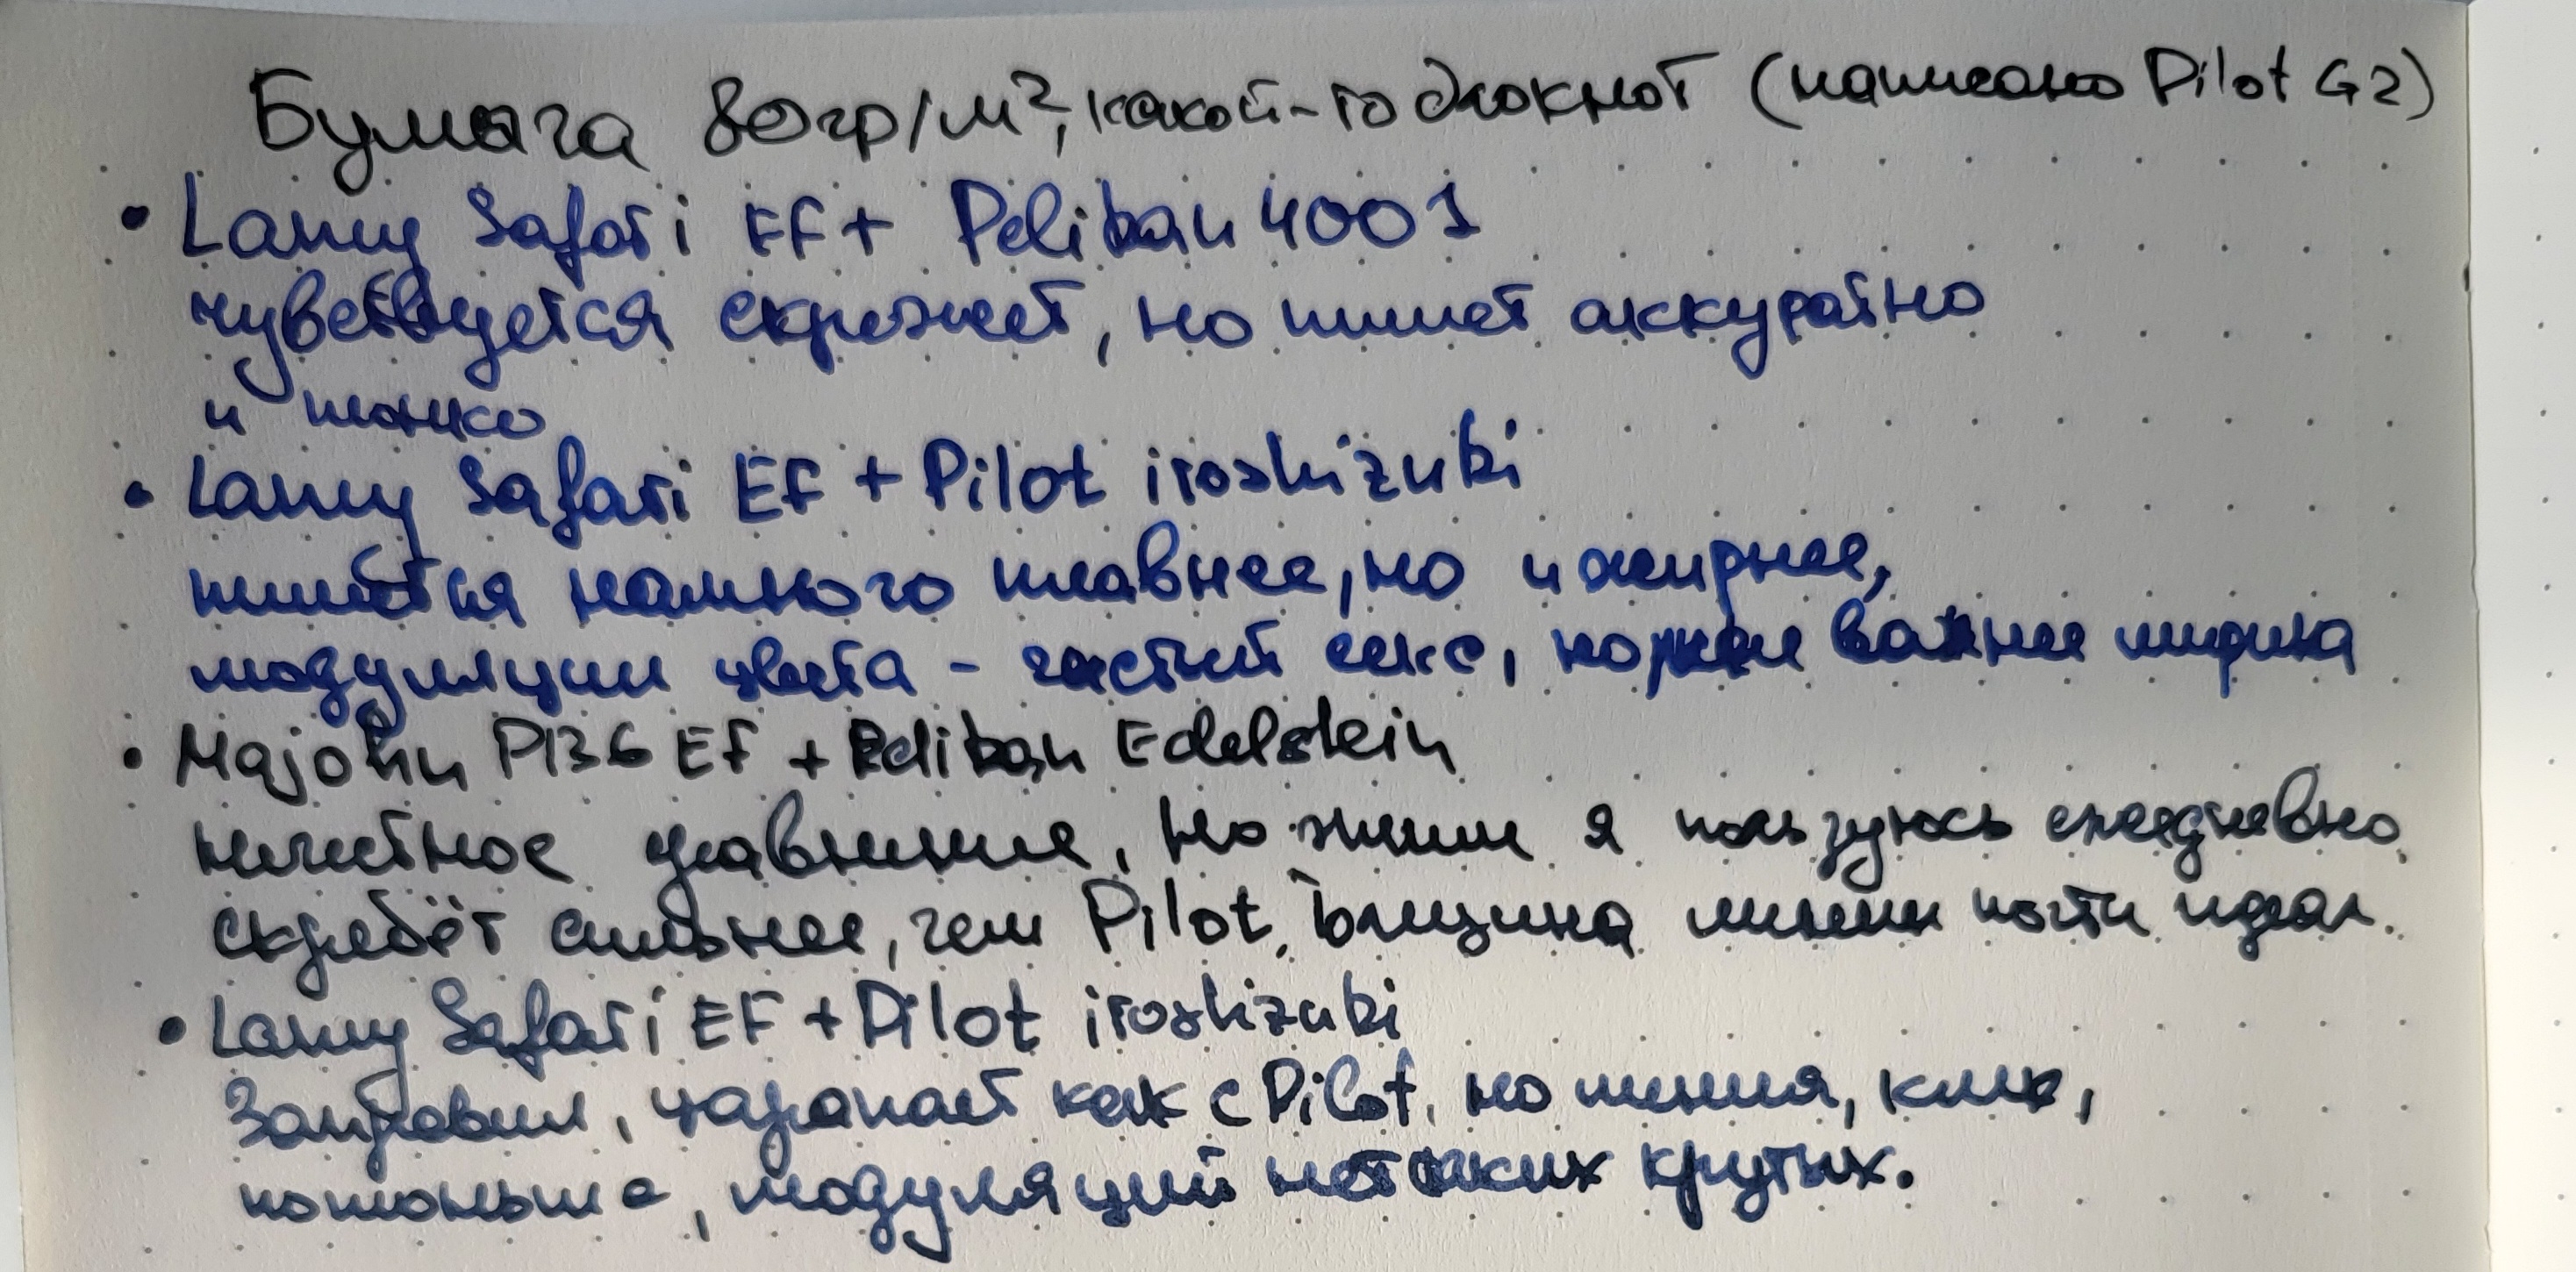 Бумага 80гр/м², какой-то блокнот (написано Pilot G2)
• Lamy Safari EF + Pelikan 4001
чувствуется скрежет, но пишет аккуратно
и тонко
• Lamy Safari EF + Pilot iroshizuki
пишется намного плавнее, но и жирнее,
модуляции цвета - чистый секс, но мне важнее ширина
• Majohn P136 EF + Pelikan Edelstein
нечестное сравнение, но ними я пользуюсь ежедневно,
скребёт сильнее, чем Pilot, толщина линии почти идеал.
• Lamy Safari EF + Pilot iroshizuki
Заправил, царапает как с Pilot, но линия,
потоньше, модуляций нет таких крутых.